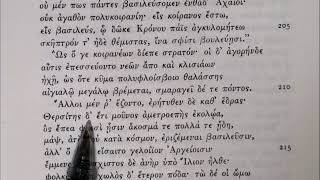 οὐ μέν πως πάντες βασιλεύσομεν ἐνθάδ' Ἀχαιοί·
οὐκ ἀγαθὸν πολυκοιρανίη· εἷς κοίρανος ἔστω,
εἷς βασιλεύς, ᾧ δῶκε Κρόνου πάϊς ἀγκυλομήτεω 205
σκῆπτρόν τ' ἠδὲ θέμιστας, ἵνα σφίσι βουλεύῃσι."
Ὣς ὅ γε κοιρανέων δίεπε στρατόν· οἱ δ' ἀγορήνδε
αὖτις ἐπεσσεύοντο νεῶν ἄπο καὶ κλισιάων
ἠχῇ, ὡς ὅτε κῦμα πολυφλοίσβοιο θαλάσσης
αἰγιαλῷ μεγάλῳ βρέμεται, σμαραγεῖ δέ τε πόντος. 210
Ἄλλοι μέν ῥ' ἕζοντο, ἐρήτυθεν δὲ καθ' ἕδρας·
Θερσίτης δ' ἔτι μοῦνος ἀμετροεπὴς ἐκολῴα,
ὃς ἔπεα φρεσὶν ᾗσιν ἄκοσμά τε πολλά τε ᾔδη,
μάψ, ἀτὰρ οὐ κατὰ κόσμον, ἐριζέμεναι βασιλεῦσιν,
ἀλλ' ὅ τι οἱ εἴσαιτο γελοίϊον Ἀργείοισιν 215
αἴσχιστος δὲ ἀνὴρ ὑπὸ Ἴλιον ἦλθε·
χωλὸς δ' ἕτερον πόδα· τὼ δέ οἱ